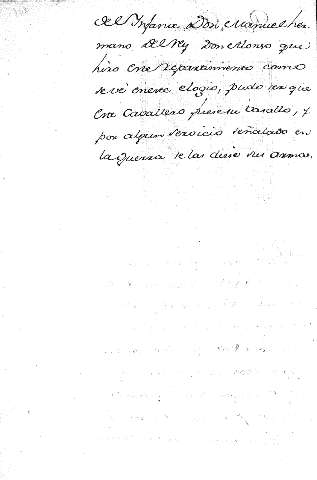 del Infante Don Manuel her-
mano del Rey Don Alonso que
hizo este Repartimiento como
se vé en este elogio, pudo ser que
este Cavallero fuese su vasallo, y
por algun servicio señalado en
la guerra se las diese sus armas.